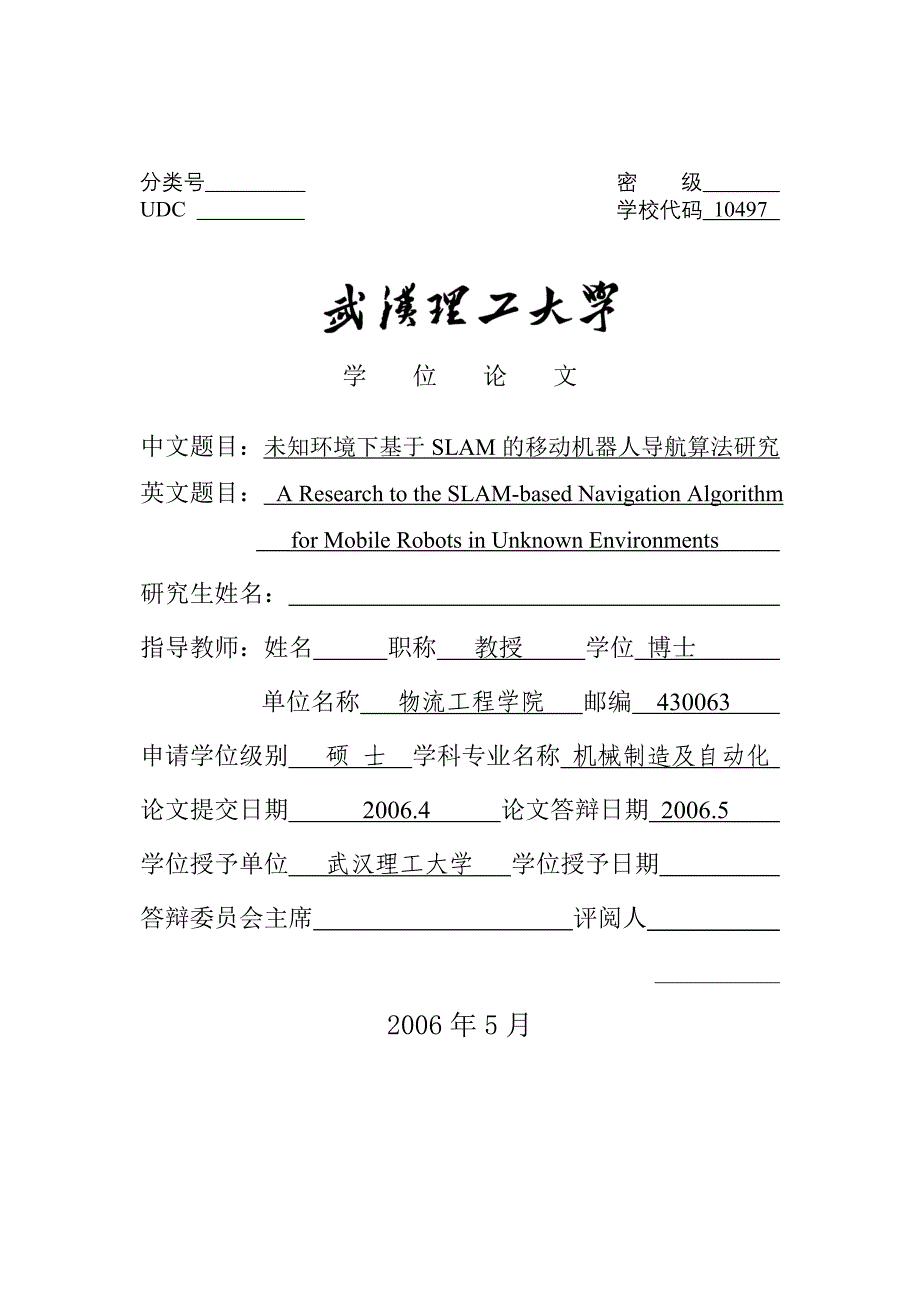 分类号__________ 密　　级________
UDC __________ 学校代码 10497
武漢理工大學
学　位　论　文
中文题目：未知环境下基于 SLAM 的移动机器人导航算法研究
英文题目： A Research to the SLAM-based Navigation Algorithm
for Mobile Robots in Unknown Environments
研究生姓名：
指导教师：姓名______职称 教授 学位 博士
单位名称 物流工程学院 邮编 430063
申请学位级别 硕 士 学科专业名称 机械制造及自动化
论文提交日期 2006.4 论文答辩日期 2006.5
学位授予单位 武汉理工大学 学位授予日期
答辩委员会主席__________评阅人__________
2006 年 5 月